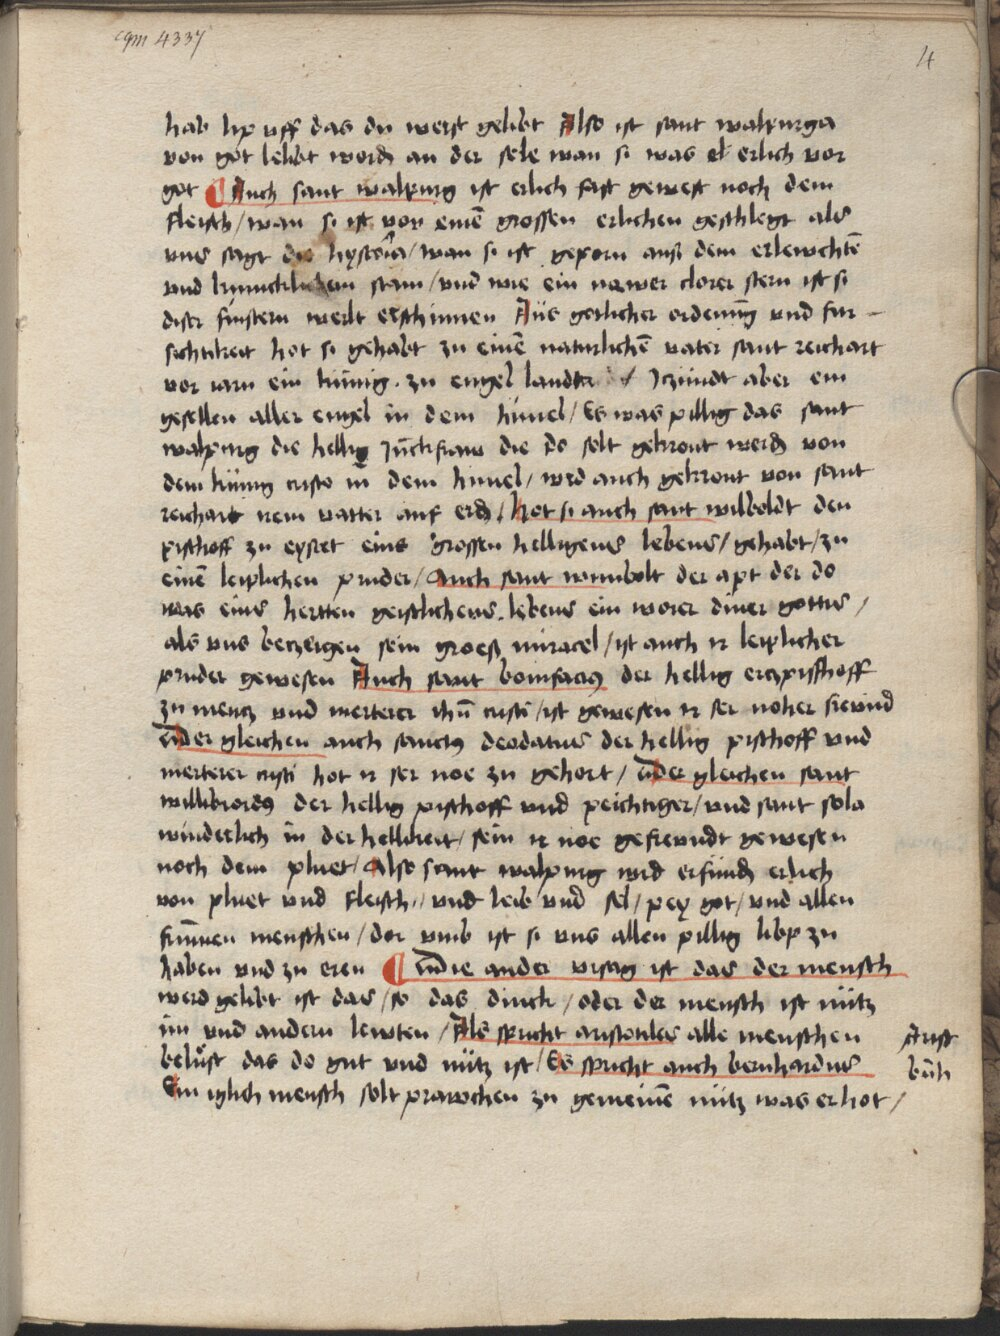 cgm 4337
4
hab lip vff das du werst gelibt Also ist sant walpurga
von got lebt word an der sele wan si was erlich vor
got Auch sant walpurg ist erlich fast gewest noch dem
fleisch / wan si ist von einē grossen erlichen geschlegt als
vns sagt die hystoria / wan si ist geporn auß dem erlewchtē
vnd stam / vnd wie ein nawer clorer stern ist si
diser finstern werlt erschinnen Aus gotlicher ordenūg vnd fur -
sichtikeit hot si gehabt zu einē naturlichē vater sant reichart
vor iarn ein kūnig . zu engel landt Iczundt aber ein
gesellen aller engel in dem himel / Es was pillig das sant
walpurg die hellig Jūckfraw die do solt gekront werd von
dem kūnig cristo in dem himel / wrd auch gekront von sant
reichart irem vatter auf erd / hot si auch sant wilboldt den
pischoff zu eystet eins grossen helligens lebens / gehabt / zu
einē leiplichen pruder / Auch sant wunnbolt der apt der do
was eins hertten geistlichens . lebens ein worer diner gottis /
als vns beczeigen sein groeß miracel / ist auch ir leiplicher
pruder gewesen Auch sant bonifacius der hellig erczpischoff
zu mencz vnd merterer ihū cristi / ist gewesen ir ser noher frewnd
vnder gleichen auch sanctus deodatus der hellig pischoff vnd
merterer cristi hot ir ser noe zu gehort / vnder gleichen sant
willibrordus der hellig pischoff vnd peichtiger / vnd sant sola
winderlich in der hellikeit / sein ir noe gefrewndt gewesen
noch dem pluet / Also sant walpurg wird erfund erlich
von pluet vnd fleisch / vnd leib vnd sel / pey got / vnd allen
frūmen menschen / dor vmb ist si vns allen pillig libp zu
haben vnd zu eren Die ander vrsag ist das der mensch
werd gelibt ist das / so das dinck / oder der mensch ist nütz
im vnd andern lewten / Als spricht aristotiles alle menschen
belust das do gut vnd nütz ist / Es spricht auch bernhardus
Ein iglich mensch solt prawchen zu gemeinē nütz was er hot /
Arist